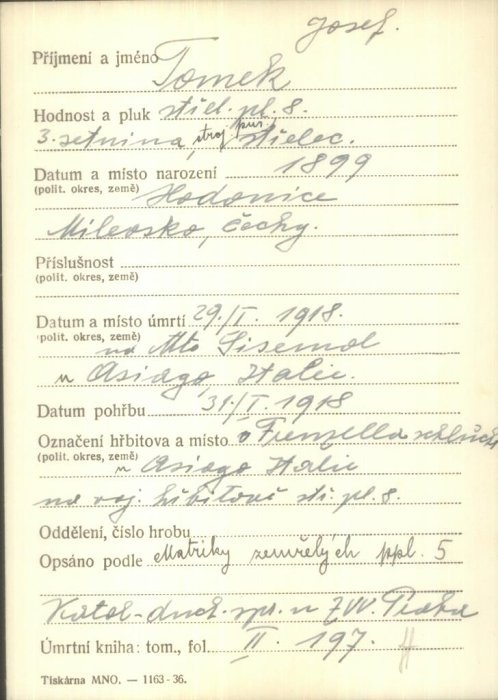 Josef.
Příjmení a jméno Tomek
Hodnost a pluk střel. pl. 8.
3. setnina, stroj. puš. střelec.
Datum a místo narození 1899
(polit. okres, země) Hodonice
Milevsko, Čechy.
Příslušnost
(polit. okres, země)
Datum a místo úmrtí 29./I. 1918.
(polit. okres, země) na Mte Sisemol
u Asiago, Italie.
Datum pohřbu 31/I. 1918
Označení hřbitova a místo v Frenzella
(polit. okres, země) u Asiago Italie
na voj. hřbitově stř. pl. 8.
Oddělení, číslo hrobu
Opsáno podle Matriky zemřelých ppl. 5
Katol. duch. spr. u ZVV. Praha
Úmrtní kniha: tom., fol. II. 197.
Tiskárna MNO. — 1163-36.